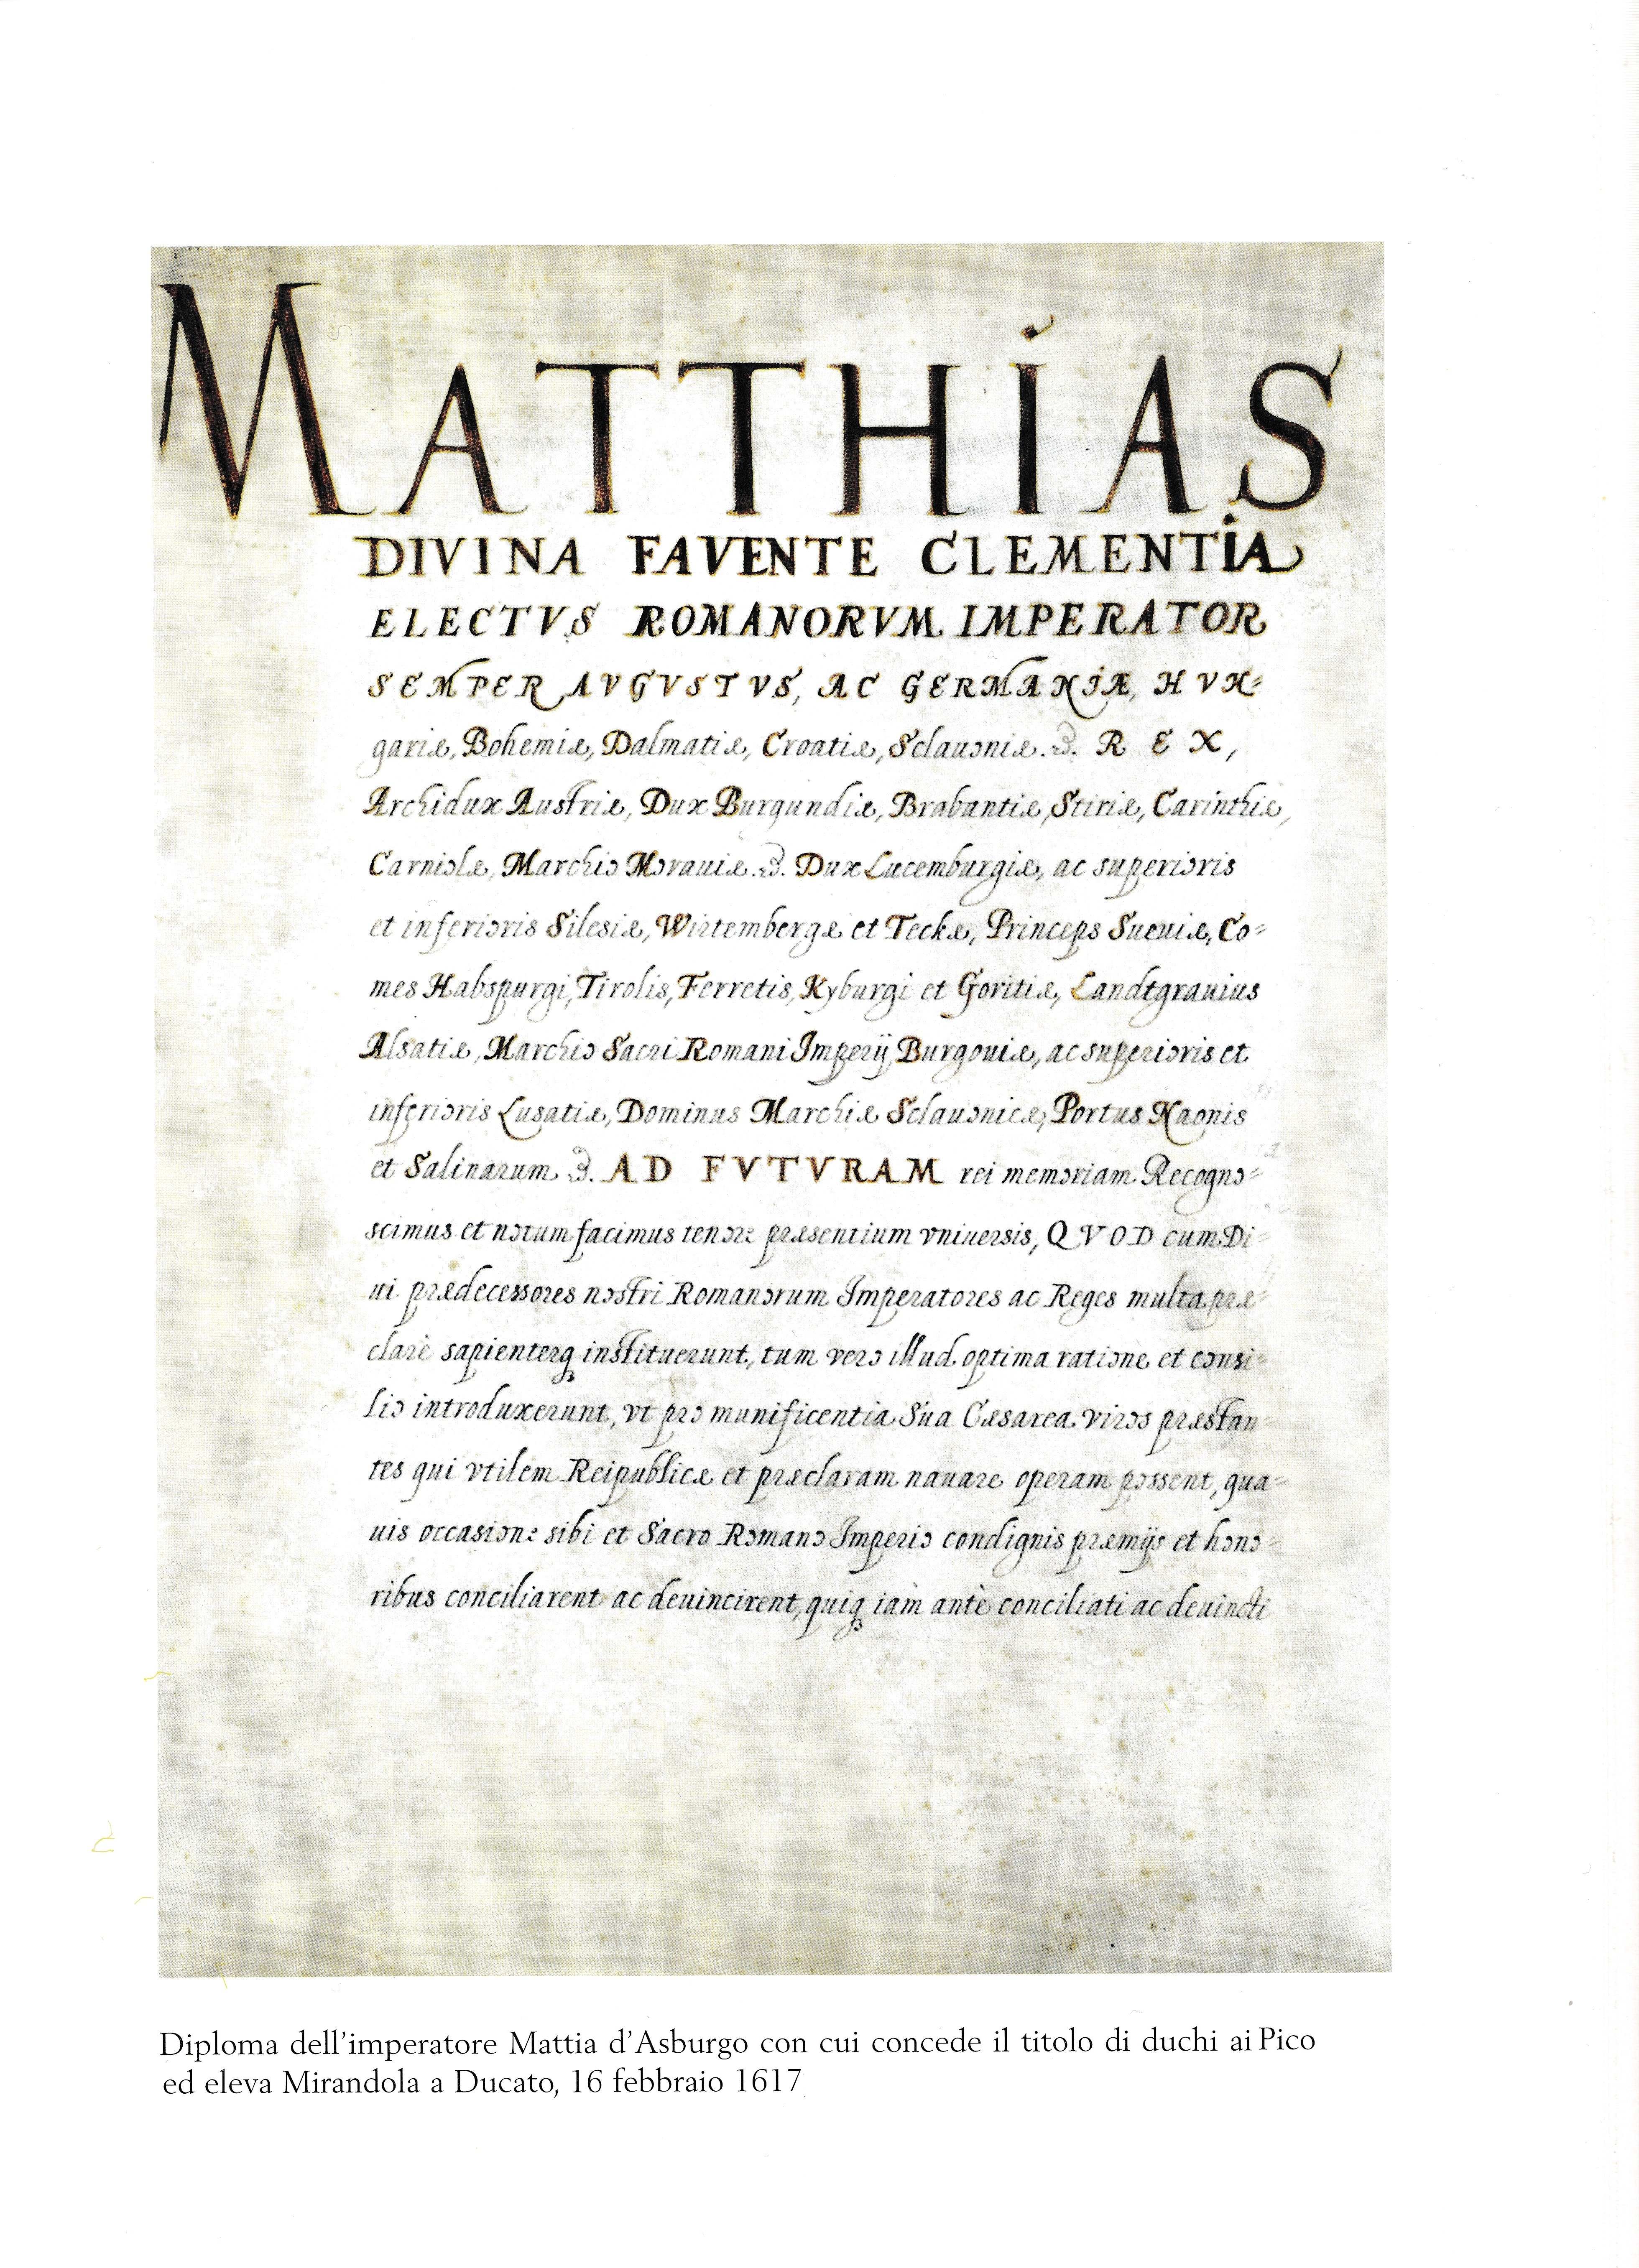 MATTHIAS
DIVINA FAVENTE CLEMENTIA
ELECTVS ROMANORVM IMPERATOR
SEMPER AVGVSTVS, AC GERMANIÆ, HVN=
gariæ, Bohemiæ, Dalmatiæ, Croatiæ, Sclauoniæ. &. REX,
Archidux Austriæ, Dux Burgundiæ, Brabantiæ, Stiriæ, Carinthiæ,
Carniolæ, Marchio Morauiæ. &. Dux Lucemburgiæ, ac superioris
et inferioris Silesiæ, Wirtembergæ et Teckæ, Princeps Sueuiæ, Co=
mes Habspurgi, Tirolis, Ferretis, Kyburgi et Goritiæ, Landtgrauius
Alsatiæ, Marchio Sacri Romani Imperij Burgouiæ, ac superioris et
inferioris Lusatiæ, Dominus Marchiæ Sclauonicæ, Portus Naonis
et Salinarum &. AD FVTVRAM rei memoriam. Recogno=
scimus et notum facimus tenore præsentium vniuersis, QVOD cum Di=
ui prædecessores nostri Romanorum Imperatores ac Reges multa præ=
clarè sapienterq instituerunt, tum vero illud optima ratione et consi=
lio introduxerunt, vt pro munificentia Sua Cæsarea viros præstan=
tes qui vtilem Reipublicæ et præclaram nauare operam possent, qua=
uis occasione sibi et Sacro Romano Imperio condignis præmijs et hono=
ribus conciliarent ac deuincirent, quiq iàm antè conciliati ac deuincti
Diploma dell'imperatore Mattia d'Asburgo con cui concede il titolo di duchi ai Pico
ed eleva Mirandola a Ducato, 16 febbraio 1617